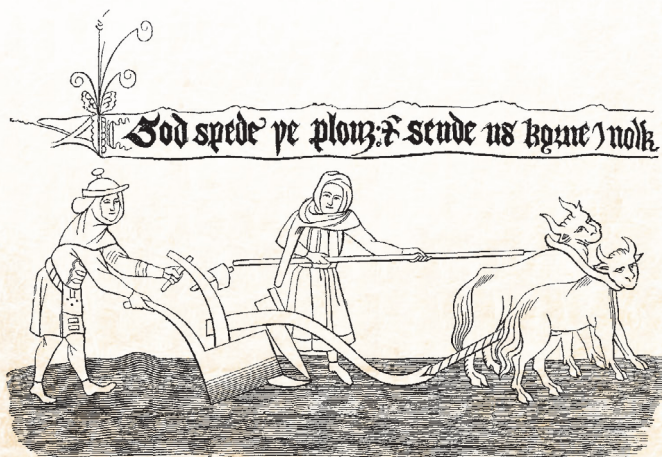 God spede ye plouȝ: & sende us korne inolk